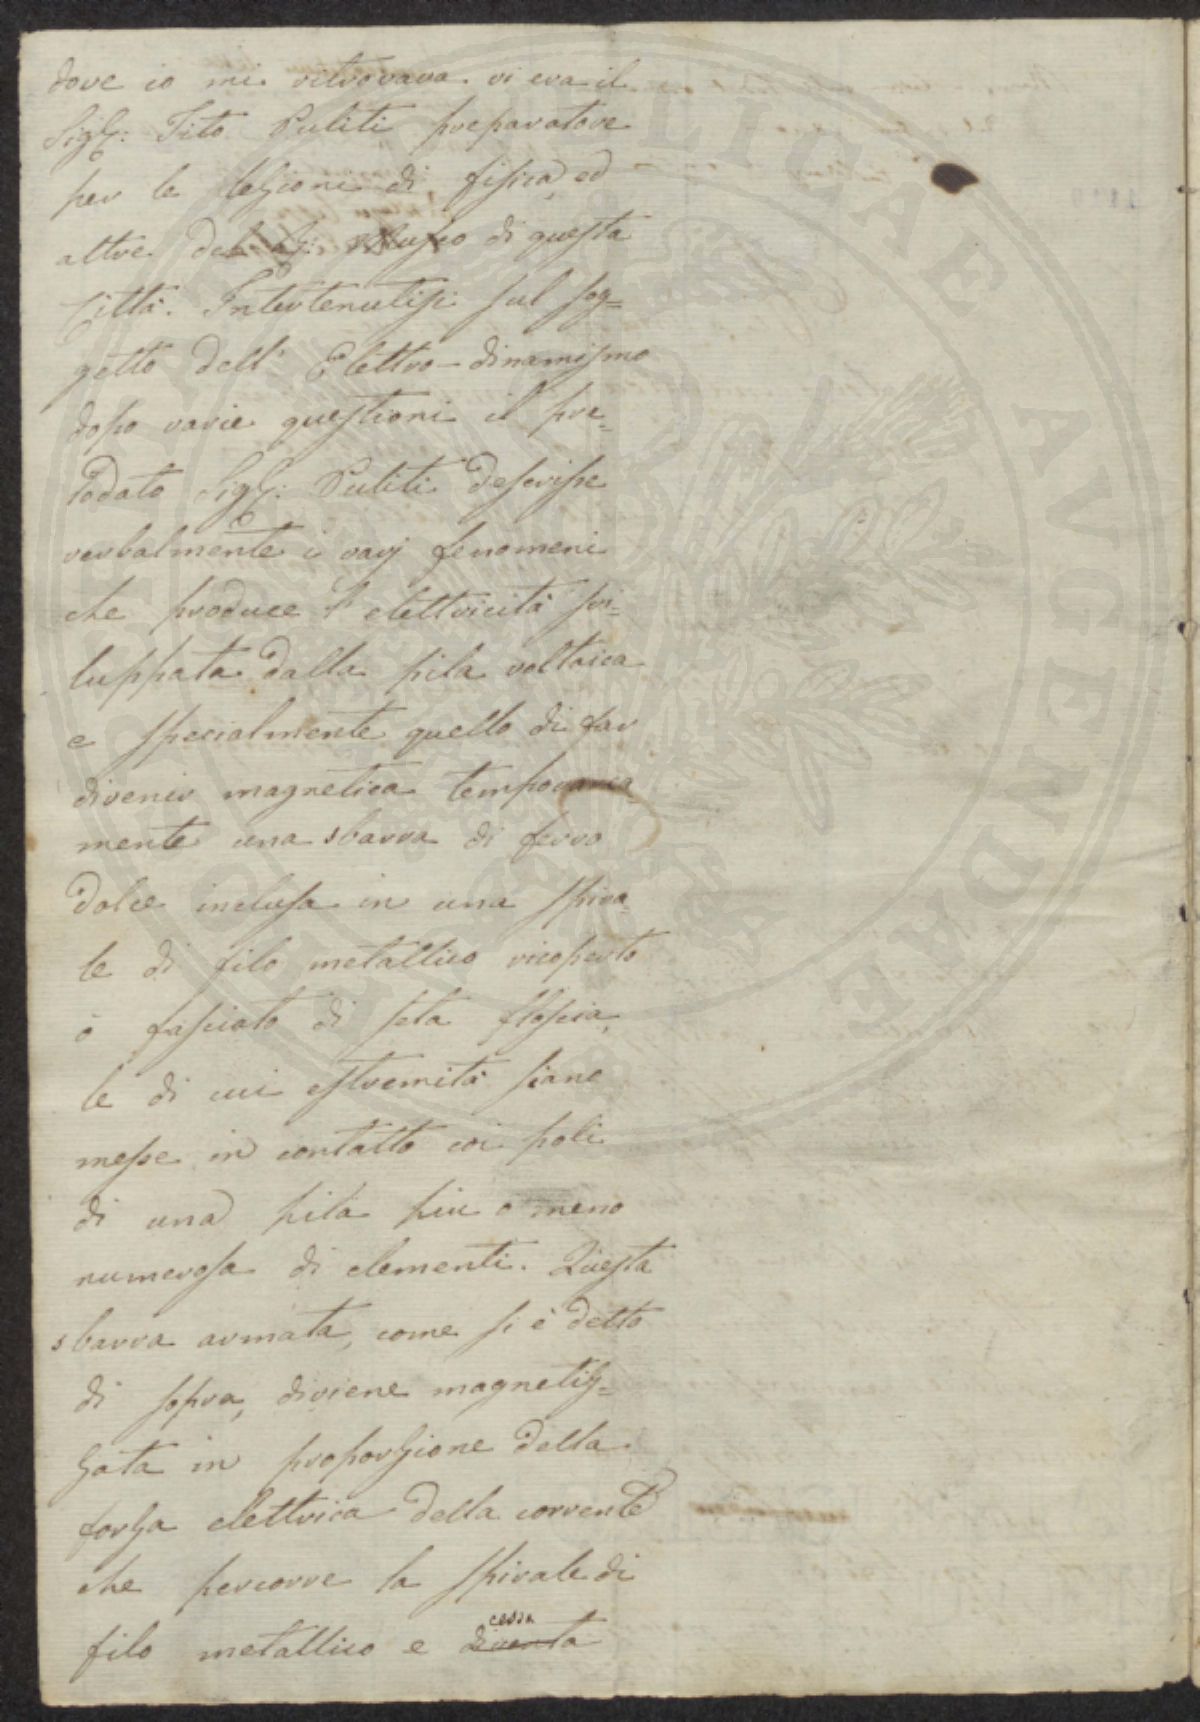 dove io mi ritrovava vi era il
Sigr: Tito Puliti preparatore
per le lezioni di fisica, ed
altre del Museo di questa
Città. Intertenutisi sul sog=
getto dell' Elettro-dinamismo
dopo varie questioni il pre=
lodato Sigr: Puliti descrisse
verbalmente i varj fenomeni
che produce l' elettricità svi=
luppata dalla pila voltaica
e specialmente quello di far
divenir magnetica temporaria
mente una sbarra di ferro
dolce inclusa in una spira=
le di filo metallico ricoperto
o fasciato di seta floscia,
le di cui estremità siano
messe in contatto coi poli
di una pila piu o meno
numerosa di elementi. Questa
sbarra armata, come si è detto
di sopra, diviene magnetiz=
zata in proporzione della
forza elettrica della corrente
che percorre la spirale di
cessa
filo metallico e diventa